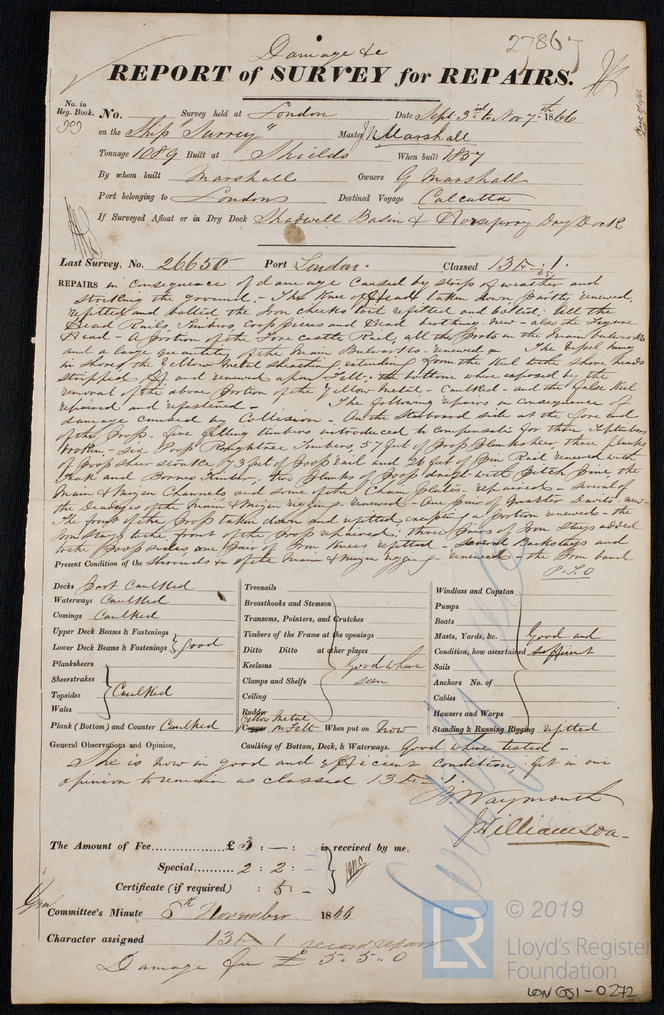 Damage &c
27867
REPORT of SURVEY for REPAIRS.
No. in Reg. Book.
No. Survey held at London Date Sept 3rd to Nov 7th 1866
on the Ship "Surrey" Master J N Marshall
Tonnage 1089 Built at Shields When built 1857
By whom built Marshall Owners G Marshall
Port belonging to London Destined Voyage Calcutta
If Surveyed Afloat or in Dry Dock Shadwell Basin & Horseferry Dry Dock
Last Survey, No. 26650 Port London. Classed 13 A 1.
REPAIRS in consequence of damage caused by stress of weather and
striking the ground. - The Knee of Head taken down partly renewed,
refitted and bolted, the Iron cheeks refitted and bolted; all the
Head Rails, Timbers, and Head berthing new - also the Figure
Head - A portion of the Fore castle Rail, all the Ports in the Main Bulwarks
and a large quantity of the Main Bulwarks renewed &
Yellow Metal sheathing extending from the Keel to the
stripped off and renewed upon Felt; the bottom when exposed by the
removal of the above portion of the Yellow Metal - Caulked - and the false Keel
repaired and refastened - The following repairs in consequence of
damage caused by Collision - On the starboard side at the fore end
of the Poop. five filling timbers introduced to compensate for three Toptimbers
broken - six Poop Roughtree Timbers 57 feet of Poop planksheer, three planks
of poop sheer strake 73 feet of Poop rail and 26 feet of Pin Rail renewed with
Teak and Borneo timber, two planks of Poop deck with Pitch Pine, the
Main & Mizen Channels and some of the Chain plates repaired - several of
the Deadeyes of the Main & Mizen rigging renewed - One pair of Quarter Davits new -
The front of the Poop taken down and refitted excepting a portion renewed - the
Iron Stays to the front of the Poop repaired; three pairs of Iron Stays added
to the poop sides one pair of Iron Knees refitted - several Backstays and
Present Condition of the Shrouds &c of the Main & Mizen rigging renewed - the Iron band
P.T.O
Decks part Caulked
Waterways Caulked
Comings Caulked
Upper Deck Beams & Fastenings
Lower Deck Beams & Fastenings } Good
Planksheers
Sheerstrakes
Topsides } Caulked
Wales
Plank (Bottom) and Counter Caulked
Treenails
Breasthooks and Stemson
Transoms, Pointers, and Crutches
Timbers of the Frame at the openings
Ditto Ditto at other places
Keelsons } Good where
Clamps and Shelfs seen
Ceiling
Rudder
Yellow Metal
Copper on Felt When put on Now
Windlass and Capstan
Pumps
Boats
Masts, Yards, &c. } Good and
Condition, how ascertained sufficient
Sails
Anchors No. of
Cables
Hawsers and Warps
Standing & Running Rigging refitted
General Observations and Opinion, Caulking of Bottom, Deck, & Waterways. Good where tested -
She is now in good and efficient condition, fit in our
opinion to remain as classed 13 A 1.
B. Waymouth
J Williamson
The Amount of Fee..........£ 3 : - : is received by me,
Special.......... 2 : 2 :
Certificate (if required) : 5 : -
Committee's Minute 8th November 1866
Character assigned 13 A 1 record repair
Damage fee £ 5. 5. 0
© 2019
LR
Lloyd's Register
Foundation
LON GSI - 0272